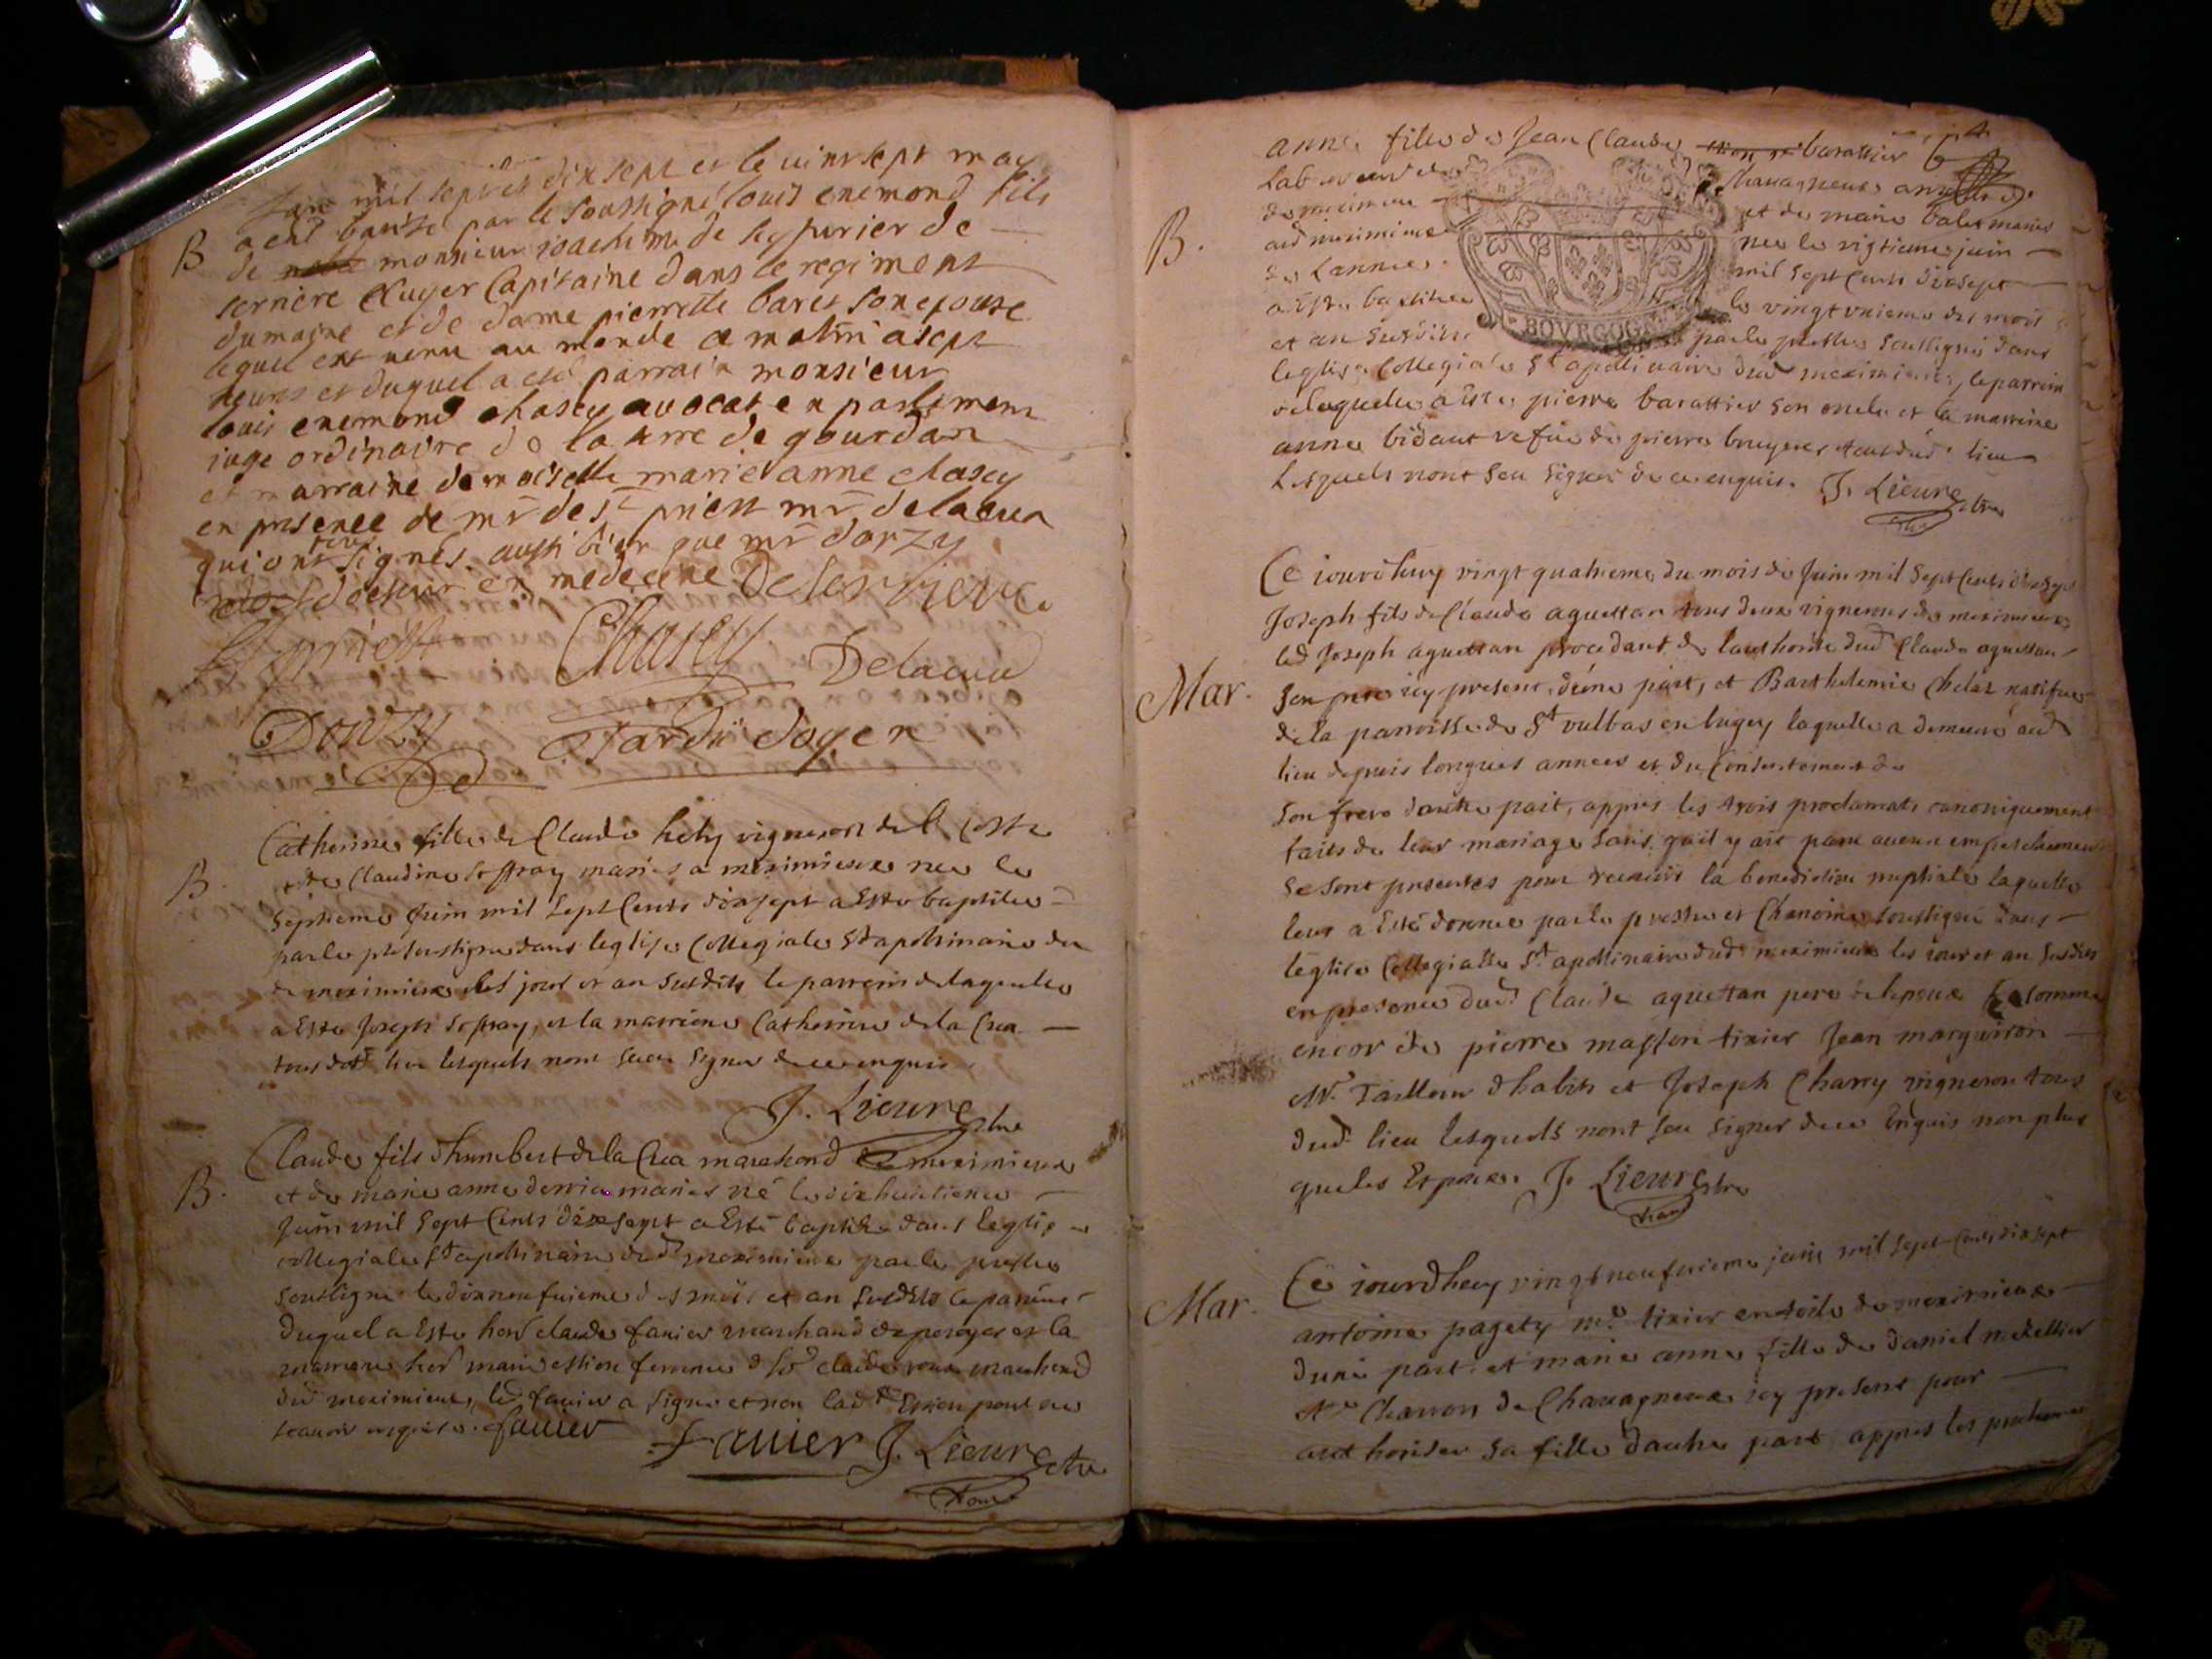 Lan mil sept cts dix sept et le vint sept may
B a esté batisé par le soussigné louis enemond fils
de monsieur joachim de seyturier de
serriere Ecuyer Capitaine dans le regiment
dumaine et de dame pierrette baret son epouse
lequel est venu au monde ce matin a sept
heures et duquel a esté parrain monsieur
louis enemond chasey avocat en parlement
juge ordinaire de la terre de gourdan
et marraine demoiselle marie anne chasey
en presence de mr de st priest mr delacua
qui ont signés aussi bien que mr donzy
docteur en medecine De serriere
St priest Chasey Delacua
Donzy Tardi doyen
Catherine fille de Claude hely vigneron de la coste
B. et de Claudine soffray mariés a meximieux née le
septieme Juin mil sept Cents dix sept a Esté baptisée
par le ptre soussigné dans leglise Collegiale St apollinaire du
de meximieux les jour et an susdits le parrein de laquelle
a Esté Joseph soffray, et la marreine Catherine de la Cua
tous dud lieu lesquels nont sceu signer de ce enquis
J. Lieure ptre
Claude fils dhumbert de la Cua marchand de meximieux
B. et de marie anne derriu mariés né le dixhuictieme
Juin mil sept Cents dix sept a Esté baptisé dans leglise
collegiale St apollinaire dud meximieux par le prestre
soussigné le dixneufuieme des mois et an susdits le parreine
duquel a Esté hor claude fauier marchand de peroges et la
marreine hor marie estion femme d hor claude roux marchand
dud meximieux, led fauier a signé et non lad Estion pour ne
scauoir enquise. fauier
Fauier J. Lieure ptre
64
anne fille de Jean Claude barattier
Laboureur de Chauagneux
de meximieux et de marie bales mariés
B. aud meximieux née le vigtieme juin
de Lannée mil sept Cents dixsept
a Esté baptisée le vingtunieme des mois
et an susdits par le prestre soussigné dans
BOVRGOGNE
leglise Collegiale St apollinaire dud meximieux, le parrein
de laquelle a Esté pierre barattier son oncle et la marreine
anne bidaut vefue de pierre bruyeres tous dud lieu
Lesquels nont seu signer de ce enquis. J. Lieure ptre
Ce iourdhuy vingt quatrieme du mois de Juin mil sept Cents dixsept
Joseph fils de Claude aguettan tous deux vignerons de meximieux
led Joseph aguettan procedant de lauthorité dud Claude aguettan
Mar. son pere icy present, dune part, et Barthelemie Chelas natifue
de la parroisse de St vulbas en bugey laquelle a demeuré aud
lieu depuis longues années et du Consentement de
son frere dautre part, appres les trois proclamats canoniquement
faits de leur mariage sans quil y ait paru aucun empeschement
se sont presentés pour recevoir la benediction nuptiale laquelle
leur a Esté donnée par le prestre et Chanoine soussigné dans
leglise Collegialle St apollinaire dud meximieux les iour et an susdits
en presence dud Claude aguettan pere de lepoux Et Comme
encor de pierre masson tixier Jean marguiron
Mr Tailleur dhabits et Joseph Charry vigneron tous
dud lieu lesquels nont seu signer de ce Enquis non plus
que les Espoux. J. Lieure ptre
Ce iourdhuy vingtneufuieme juin mil sept Cents dixsept
Mar. antoine pagety mre tixier en toile de meximieux
dune part et marie anne fille de daniel mekellier
Mre Charron de Chauagneux icy present pour
authoriser sa fille dautre part appres les proclamats